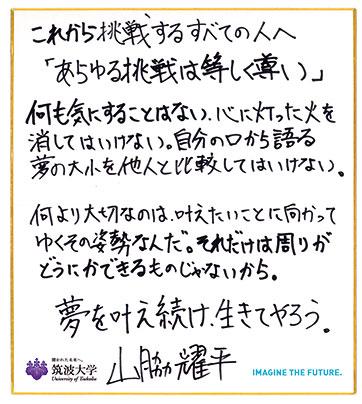 これから挑戦するすべての人へ
「あらゆる挑戦は等しく尊い」
何も気にすることはない、心に灯った火を
消してはいけない。自分の口から語る
夢の大小を他人と比較してはいけない。
何より大切なのは、叶えたいことに向かって
ゆくその姿勢なんだ。それだけは周りが
どうにかできるものじゃないから。
夢を叶え続け、生きてやろう。
開かれた未来へ。
筑波大学
University of Tsukuba
山脇 耀平
IMAGINE THE FUTURE.